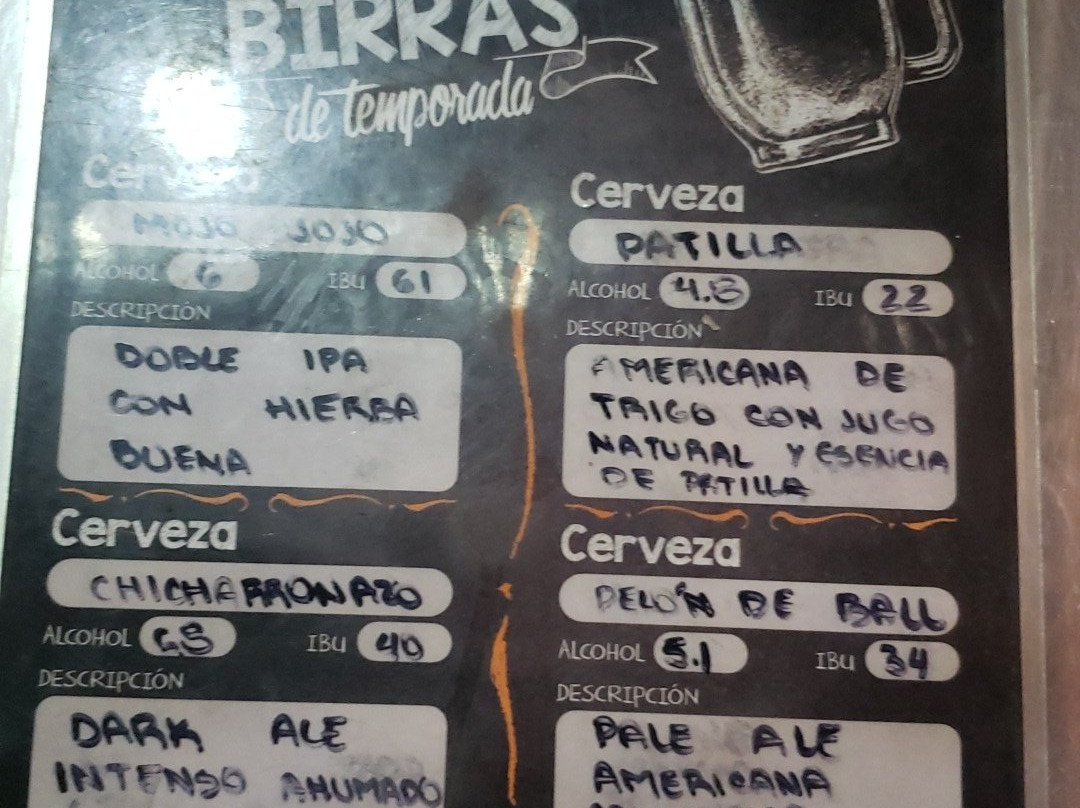 BIRRAS
de temporada
Cerveza
MOJO JOJO
ALCOHOL 6 IBU 61
DESCRIPCIÓN
DOBLE IPA
CON HIERBA
BUENA
Cerveza
PATILLA
ALCOHOL 4.8 IBU 22
DESCRIPCIÓN
AMERICANA DE
TRIGO CON JUGO
NATURAL Y ESENCIA
DE PATILLA
Cerveza
CHICHARRONAZO
ALCOHOL IBU 40
DESCRIPCIÓN
DARK ALE
INTENSO AHUMADO
Cerveza
PELÓN DE BALL
ALCOHOL 5.1 IBU 34
DESCRIPCIÓN
PALE ALE
AMERICANA